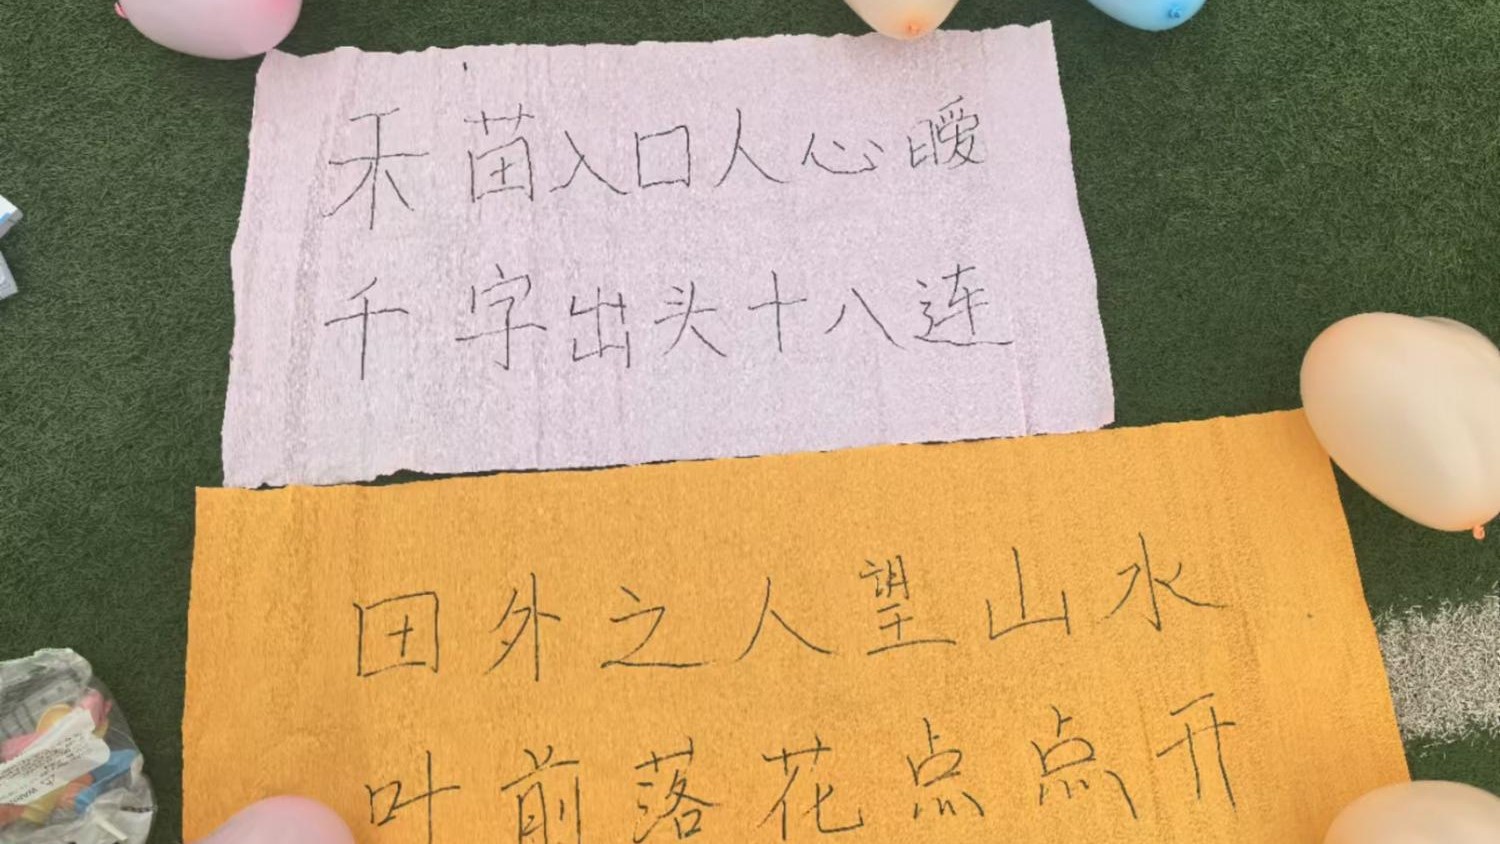 禾苗入口人心暧
千字出头十八连
田外之人望山水
叶前落花点点开